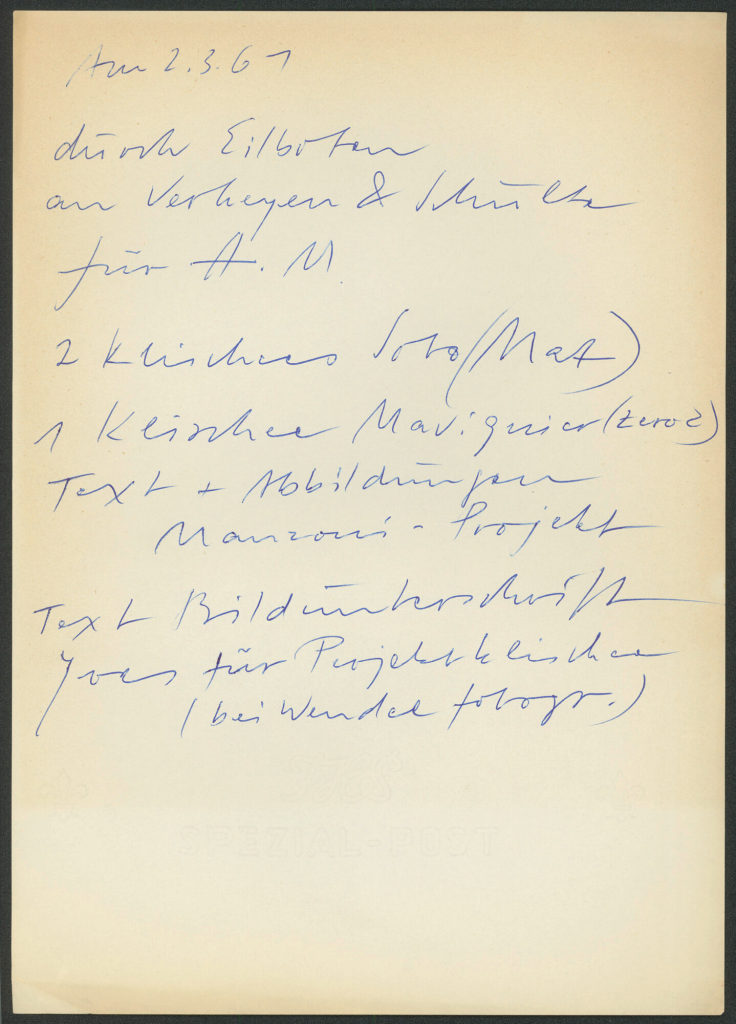 Am 2.3.61
durch Eilboten
an Verheyen & Schulte
für H. M
2 Klischees Soto (Mat)
1 Klischee Mavignier (Zero 2)
Text + Abbildungen
Manzoni - Projekt
Text Bildunterschrift
Yves für Projektklischee
(bei Wendel fotogr.)
SPEZIAL-POST